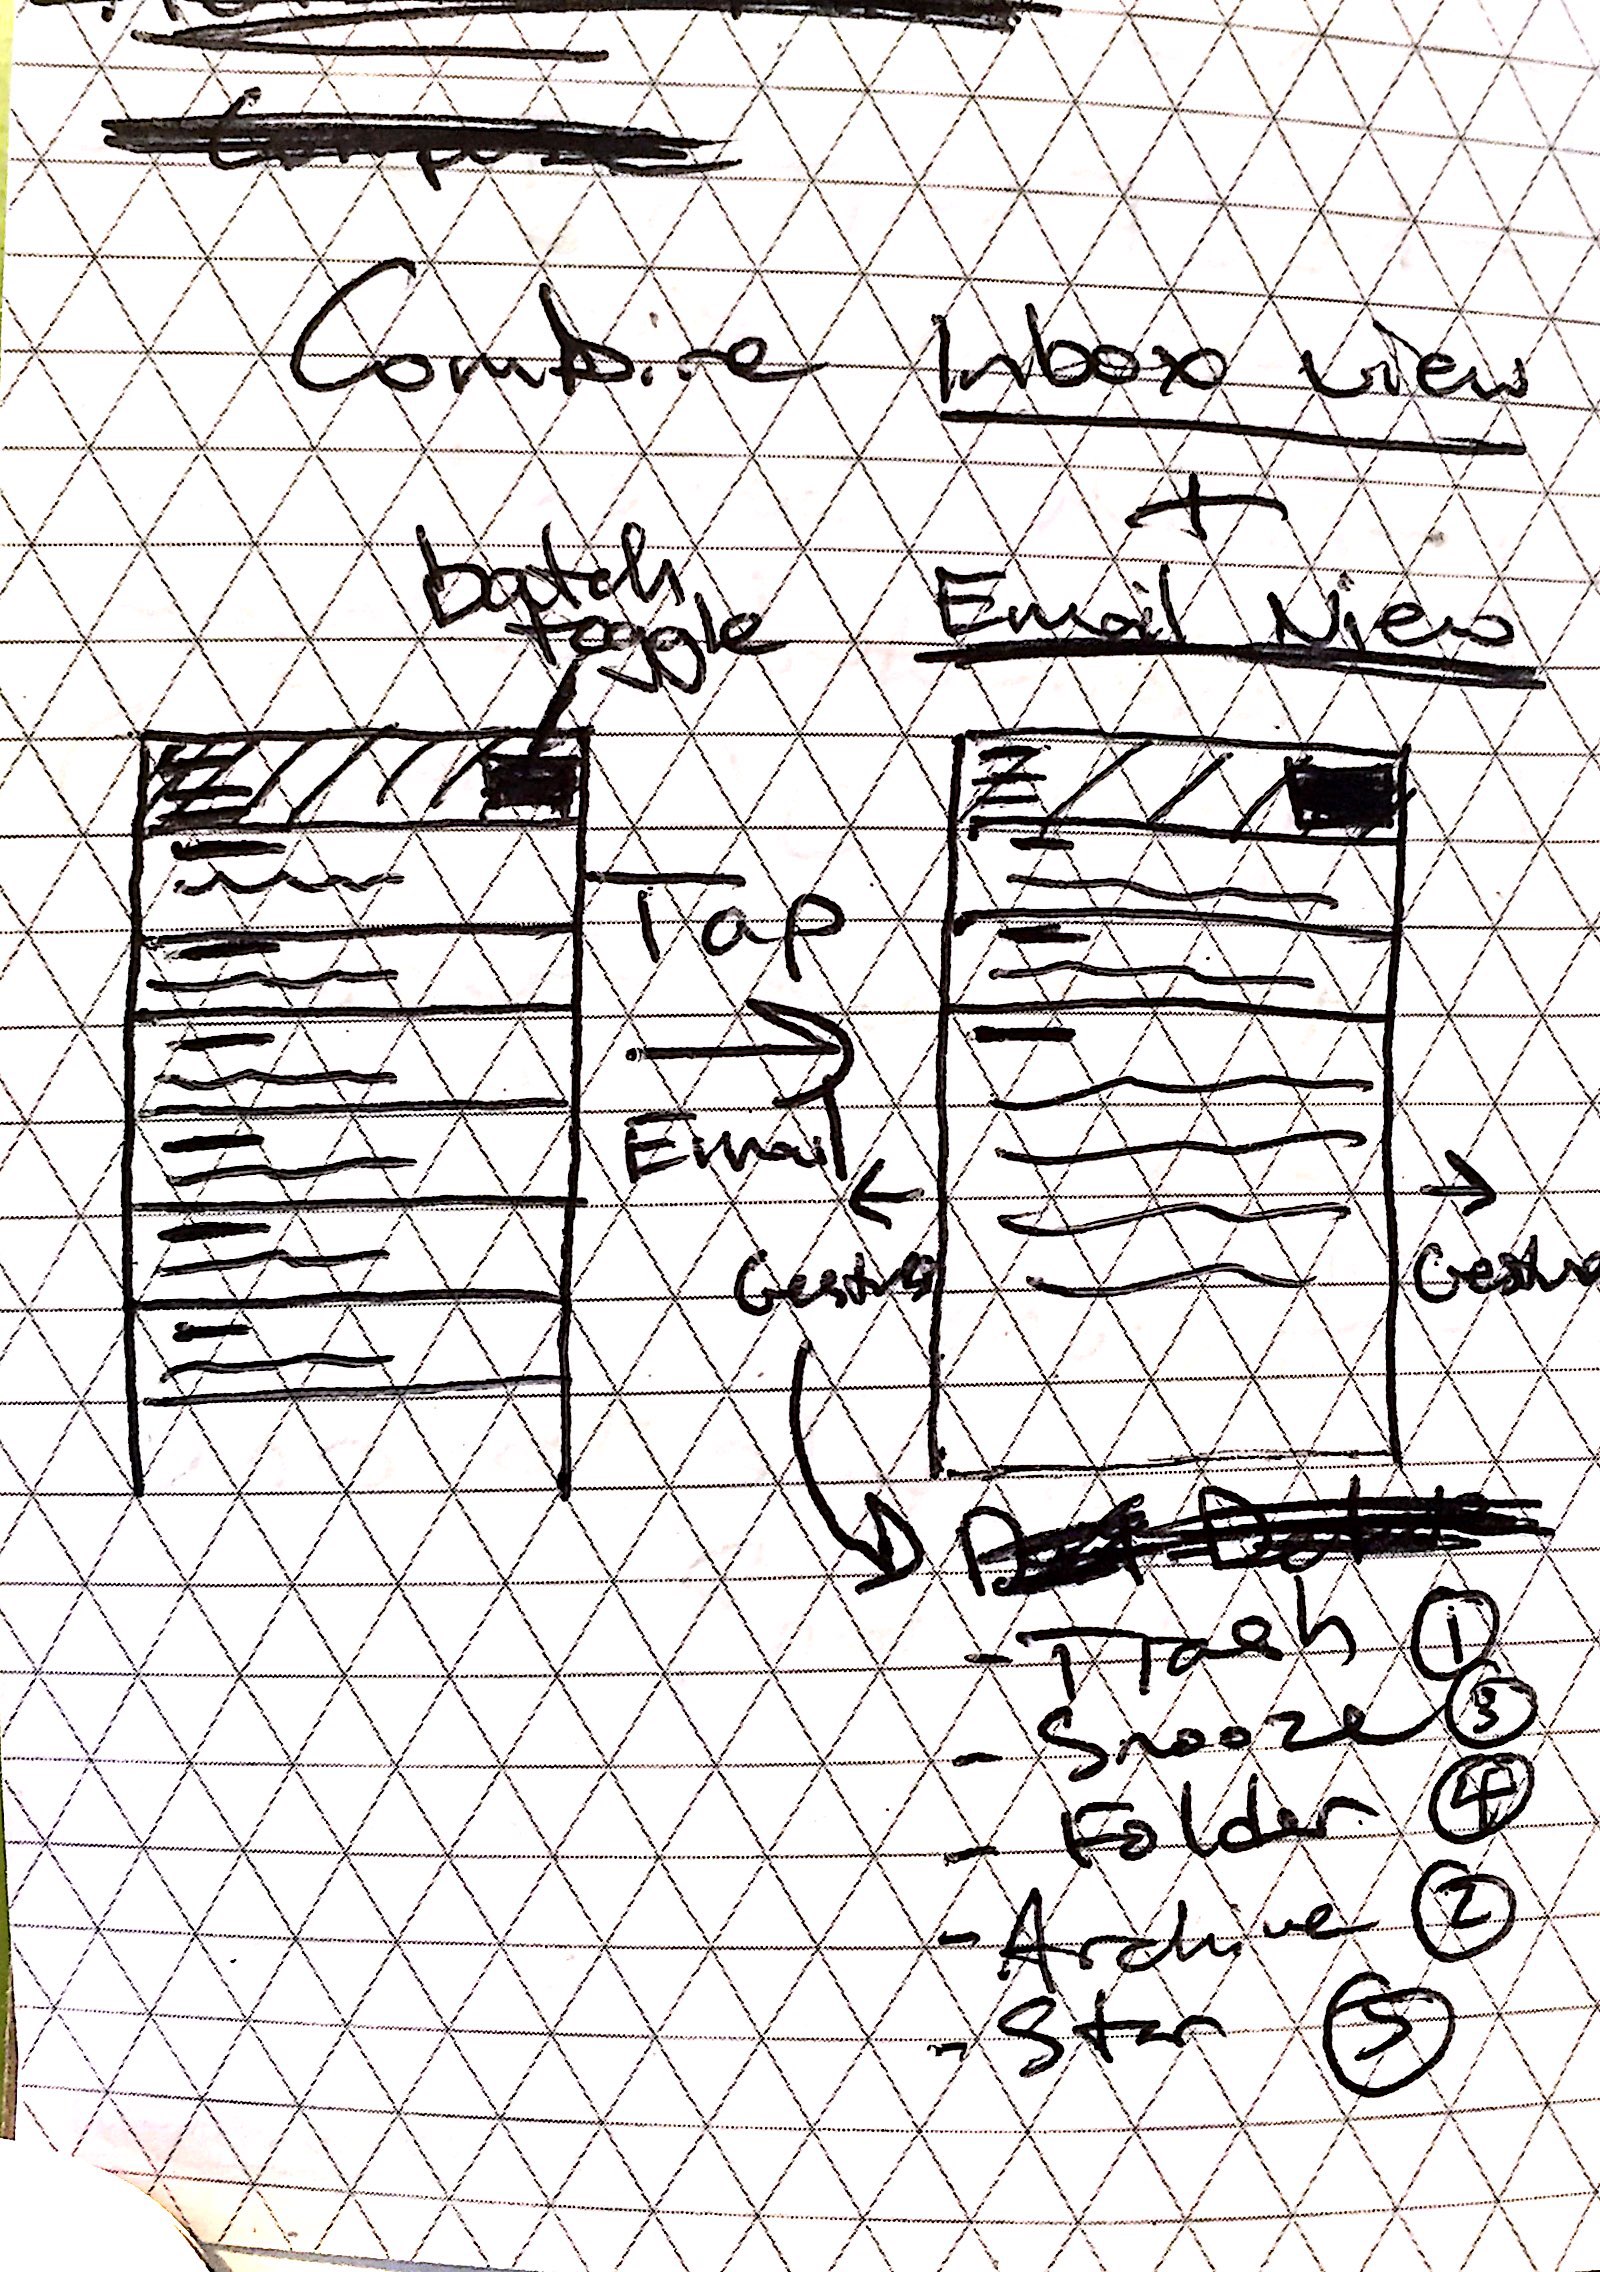 Combine Inbox view
+
Email View
batch
toggle
Tap
Email
←
→
Gesture
- Trash ①
- Snooze ③
- Folder ④
- Archive ②
- Star ⑤